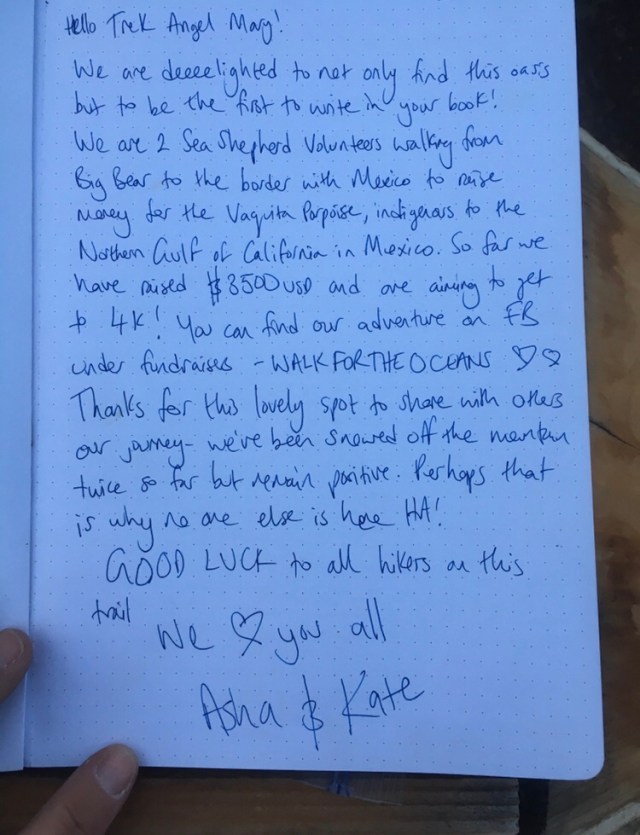 Hello Trek Angel Mary!
We are deeeelighted to not only find this oasis
but to be the first to write in your book!
We are 2 Sea Shepherd Volunteers walking from
Big Bear to the border with Mexico to raise
money for the Vaquita Porpoise, indigenous to the
Northern Gulf of California in Mexico. So far we
have raised $3500 USD and are aiming to get
to 4K! You can find our adventure on FB
under fundraisers - WALK FOR THE OCEANS ♡♡
Thanks for this lovely spot to share with others
our journey - we've been snowed off the mountain
twice so far but remain positive. Perhaps that
is why no one else is here HA!
GOOD LUCK to all hikers on this
trail
We ♡ you all
Asha & Kate